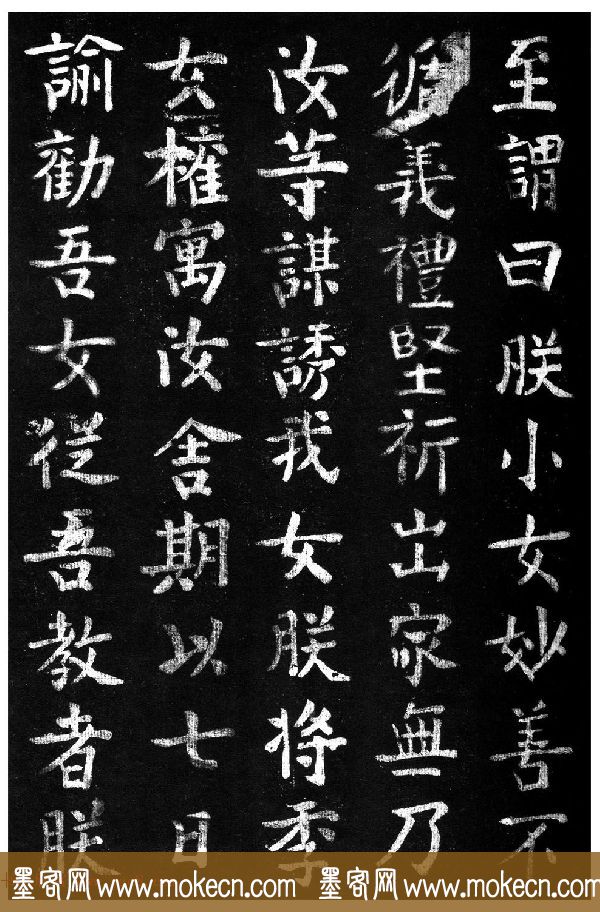 至謂曰朕小女妙善不
循義禮堅祈出家無乃
汝等謀誘我女朕將季
女權寓汝舍期以七日
諭勸吾女從吾教者朕
墨客网 www.mokecn.com 墨客网 www.mokecn.com